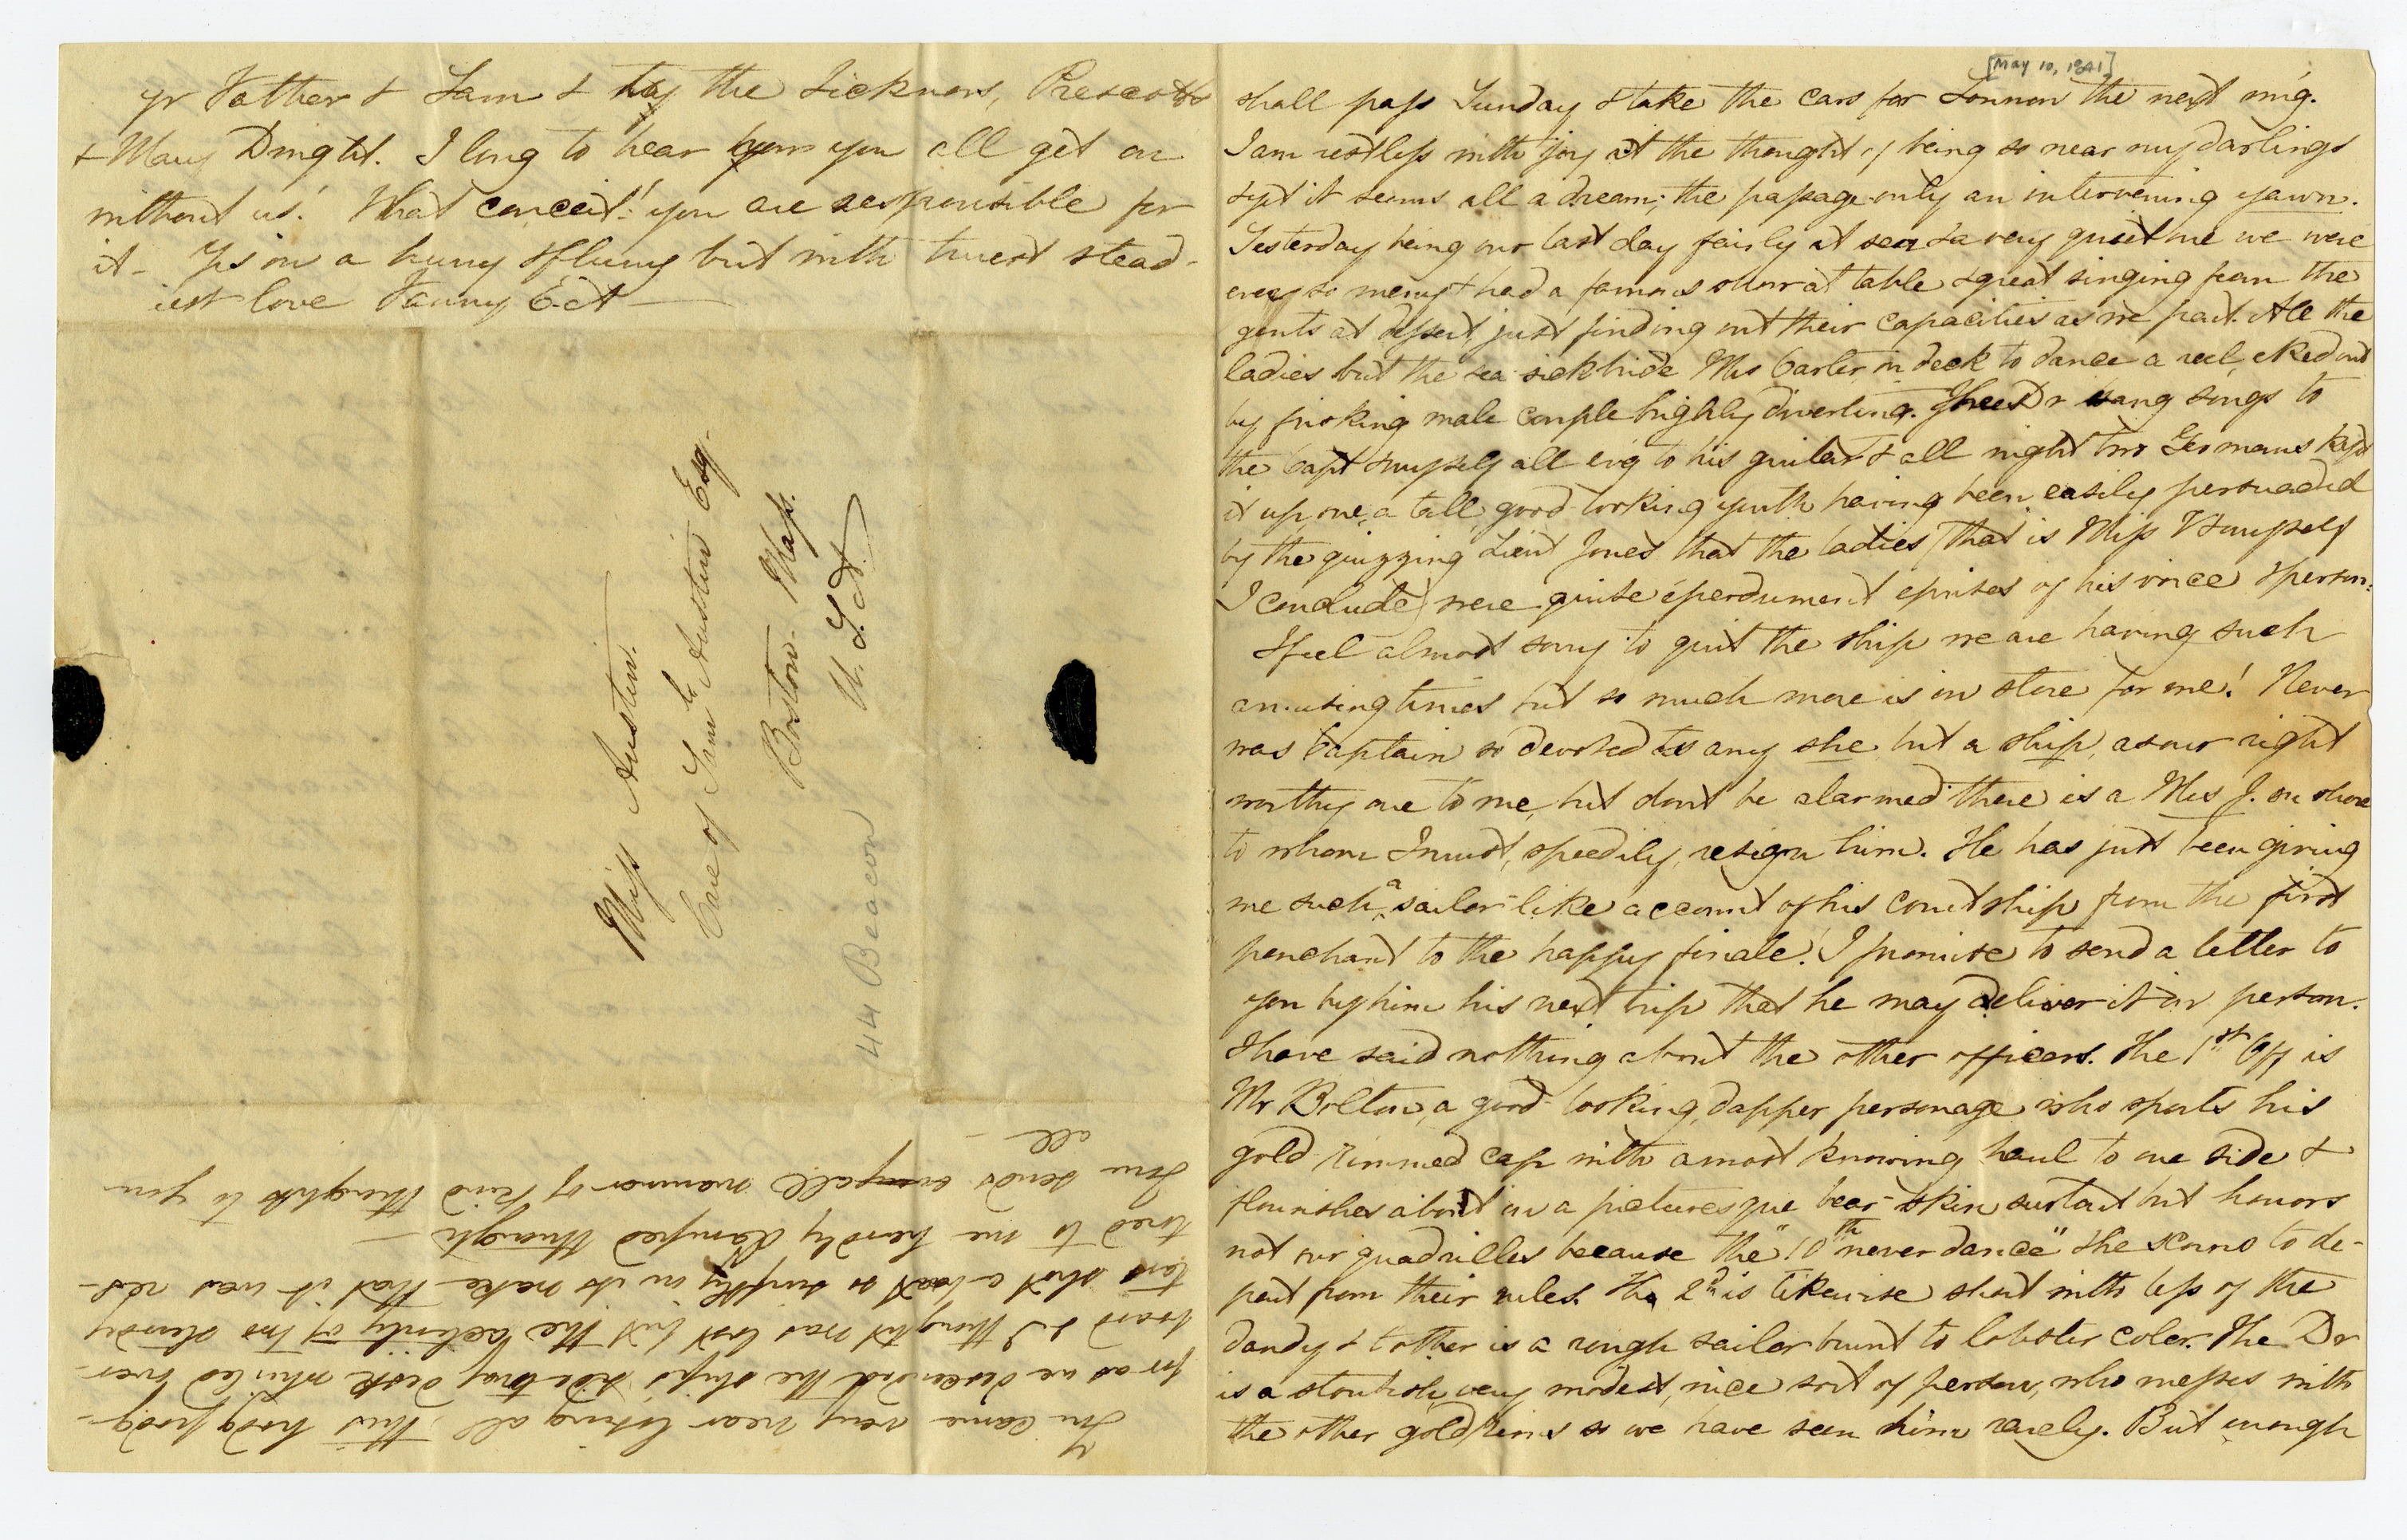 yr Father & Sam & to the Sicknors, Prescotts
& Mary Dwight. I long to hear how you all get on
without us! What conceit! you are responsible for
it – Yrs in a hurry & flurry but with truest stead-
iest love Fanny E. A
Miss Austin.
Care of Saml. Austin Esq.
Boston. Mass.
U. S. A.
44 Beacon
You came very near losing all this hodg podg-
for as we descended the ship's side my desk whirled over-
board & I thought was lost but the celerity of two sturdy
tars shot a boat so swiftly in its wake that it was res-
tored to me hardly damped through –
Tom sends all manner of kind thoughts to you
all –
[May 10, 1841]
shall pass Sunday & take the cars for Lonnon the next mg.
I am restless with joy at the thought of being so near my darlings
& yet it seems all a dream; the passage only an intervening yawn.
Yesterday being our last day fairly at sea & a very quiet one we were
ever so merry & had a famous show at table & great singing from the
gents at dessert just finding out their capacities as we part. All the
ladies but the sea sick bride Mrs Carter on deck to dance a reel, eked out
by frisking male couple highly diverting. The Dr sang songs to
the Capt & myself all ev'g to his guitar & all night two Germans kept
it up, one, a tall, good-looking youth having been easily persuaded
by the quizzing Lieut Jones that the ladies (that is Miss V & myself
I conclude) were quite éperdument eprises of his voice & person.
I feel almost sorry to quit the ship we are having such
amusing times but so much more is in store for me! Never
was Captain so devoted to any she but a ship, as our right
worthy one to me, but don't be alarmed there is a Mrs J. on shore
to whom I must, speedily, resign him. He has just been giving
me such a sailor-like account of his courtship from the first
penchant to the happy finale! I promise to send a letter to
you by him his next trip that he may deliver it in person.
I have said nothing about the other officers. The 1st Off is
Mr Bolton, a good-looking, dapper personage who sports his
gold rimmed cap with a most knowing haul to one side &
flourishes about in a picturesque bear-skin surtout but honors
not our quadrilles because the "10th never dance" & he scorns to de-
part from their rules. The 2d is likewise short with less of the
dandy & t'other is a rough sailor burnt to lobster color. The Dr
is a stoutish, very modest, nice sort of person, who messes with
the other gold rims so we have seen him rarely. But enough